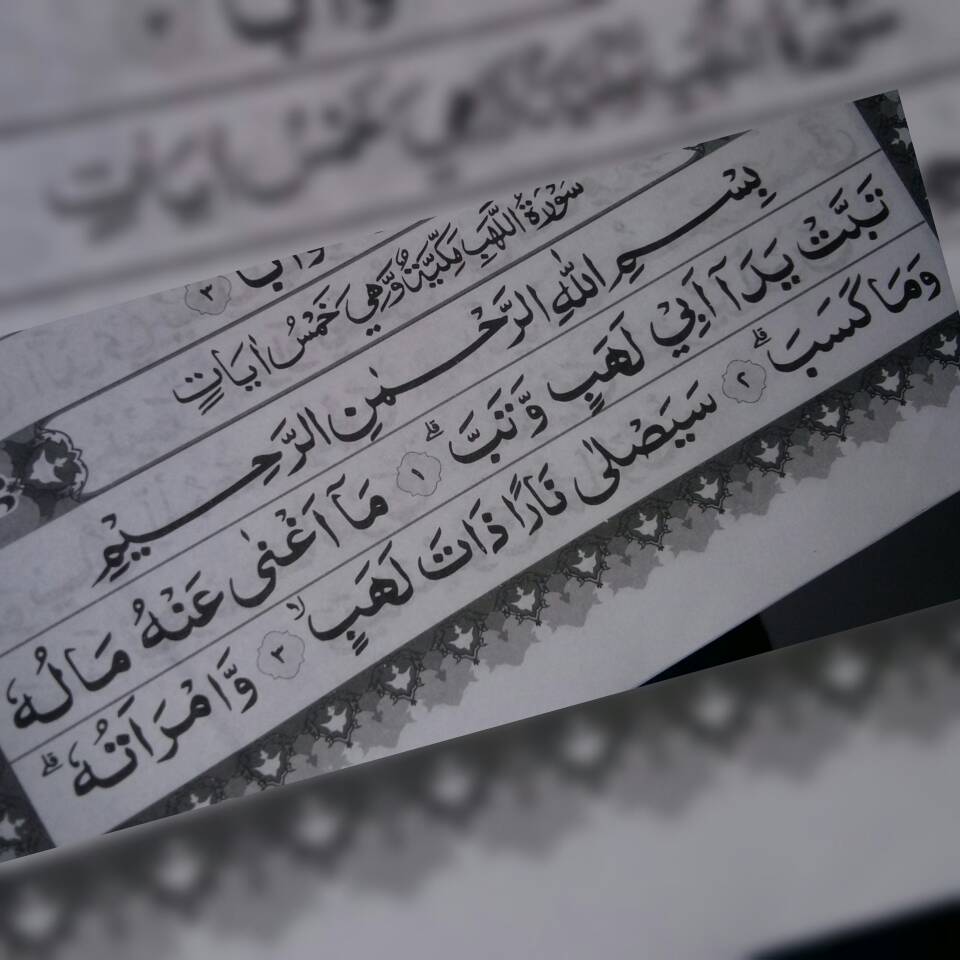 وَابً ٣
سُوْرَةُ اللَّهَبِ مَكِّيَّةٌ وَّهِيَ خَمْسُ اٰيَاتٍ
بِسْمِ اللّٰهِ الرَّحْمٰنِ الرَّحِيْمِ
تَبَّتْ يَدَآ اَبِيْ لَهَبٍ وَّتَبَّ ۗ ١ مَآ اَغْنٰى عَنْهُ مَالُهٗ
وَمَا كَسَبَ ۗ ٢ سَيَصْلٰى نَارًا ذَاتَ لَهَبٍ ۙ ٣ وَّامْرَاَتُهٗ ۗ